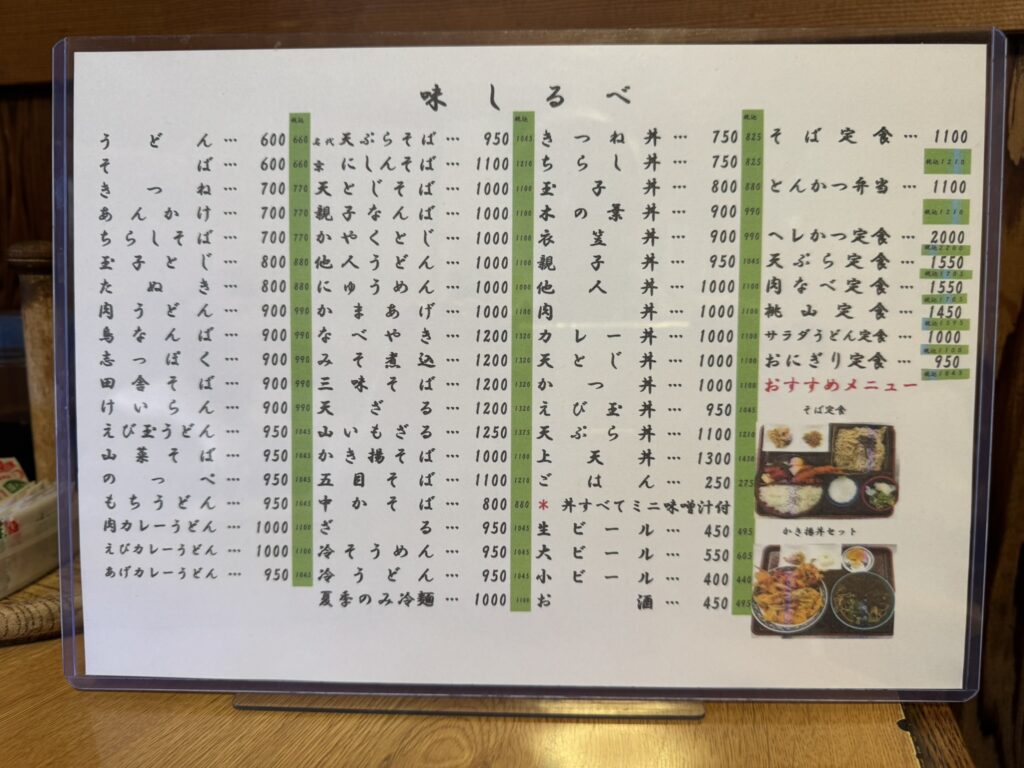 味しるべ
税込
うどん… 600 660
そば… 600 660
きつね… 700 770
あんかけ… 700 770
ちらしそば… 700 770
玉子とじ… 800 880
たぬき… 800 880
肉うどん… 900 990
鳥なんば… 900 990
志っぽく… 900 990
田舎そば… 900 990
けいらん… 900 990
えび玉うどん… 950 1045
山菜そば… 950 1045
のっぺ… 950 1045
もちうどん… 950 1045
肉カレーうどん… 1000 1100
えびカレーうどん… 1000 1100
あげカレーうどん… 950 1045
税込
名代天ぷらそば… 950 1045
京にしんそば… 1100 1210
天とじそば… 1000 1100
親子なんば… 1000 1100
かやくとじ… 1000 1100
他人うどん… 1000 1100
にゅうめん… 1000
かまあげ… 1000 1100
なべやき… 1200 1320
みそ煮込… 1200 1320
三味そば… 1200 1320
天ざる… 1200 1320
山いもざる… 1250 1375
かき揚そば… 1000 1100
五目そば… 1100 1210
中かそば… 800 880
ざる… 950 1045
冷そうめん… 950 1045
冷うどん… 950 1045
夏季のみ冷麺… 1000 1100
税込
きつね丼… 750 825
ちらし丼… 750 825
玉子丼… 800 880
木の葉丼… 900 990
衣笠丼… 900 990
親子丼… 950 1045
他人丼… 1000 1100
肉丼… 1000 1100
カレー丼… 1000 1100
天とじ丼… 1000 1100
かつ丼… 1000 1100
えび玉丼… 950 1045
天ぷら丼… 1100 1210
上天丼… 1300 1430
ごはん… 250 275
* 丼すべてミニ味噌汁付
生ビール… 450 495
大ビール… 550 605
小ビール… 400 440
お酒… 450 495
そば定食… 1100
税込1210
とんかつ弁当… 1100
税込1210
ヘレかつ定食… 2000
税込2200
天ぷら定食… 1550
税込1705
肉なべ定食… 1550
税込1705
桃山定食… 1450
税込1595
サラダうどん定食… 1000
税込1100
おにぎり定食… 950
税込1045
おすすめメニュー
そば定食
かき揚丼セット